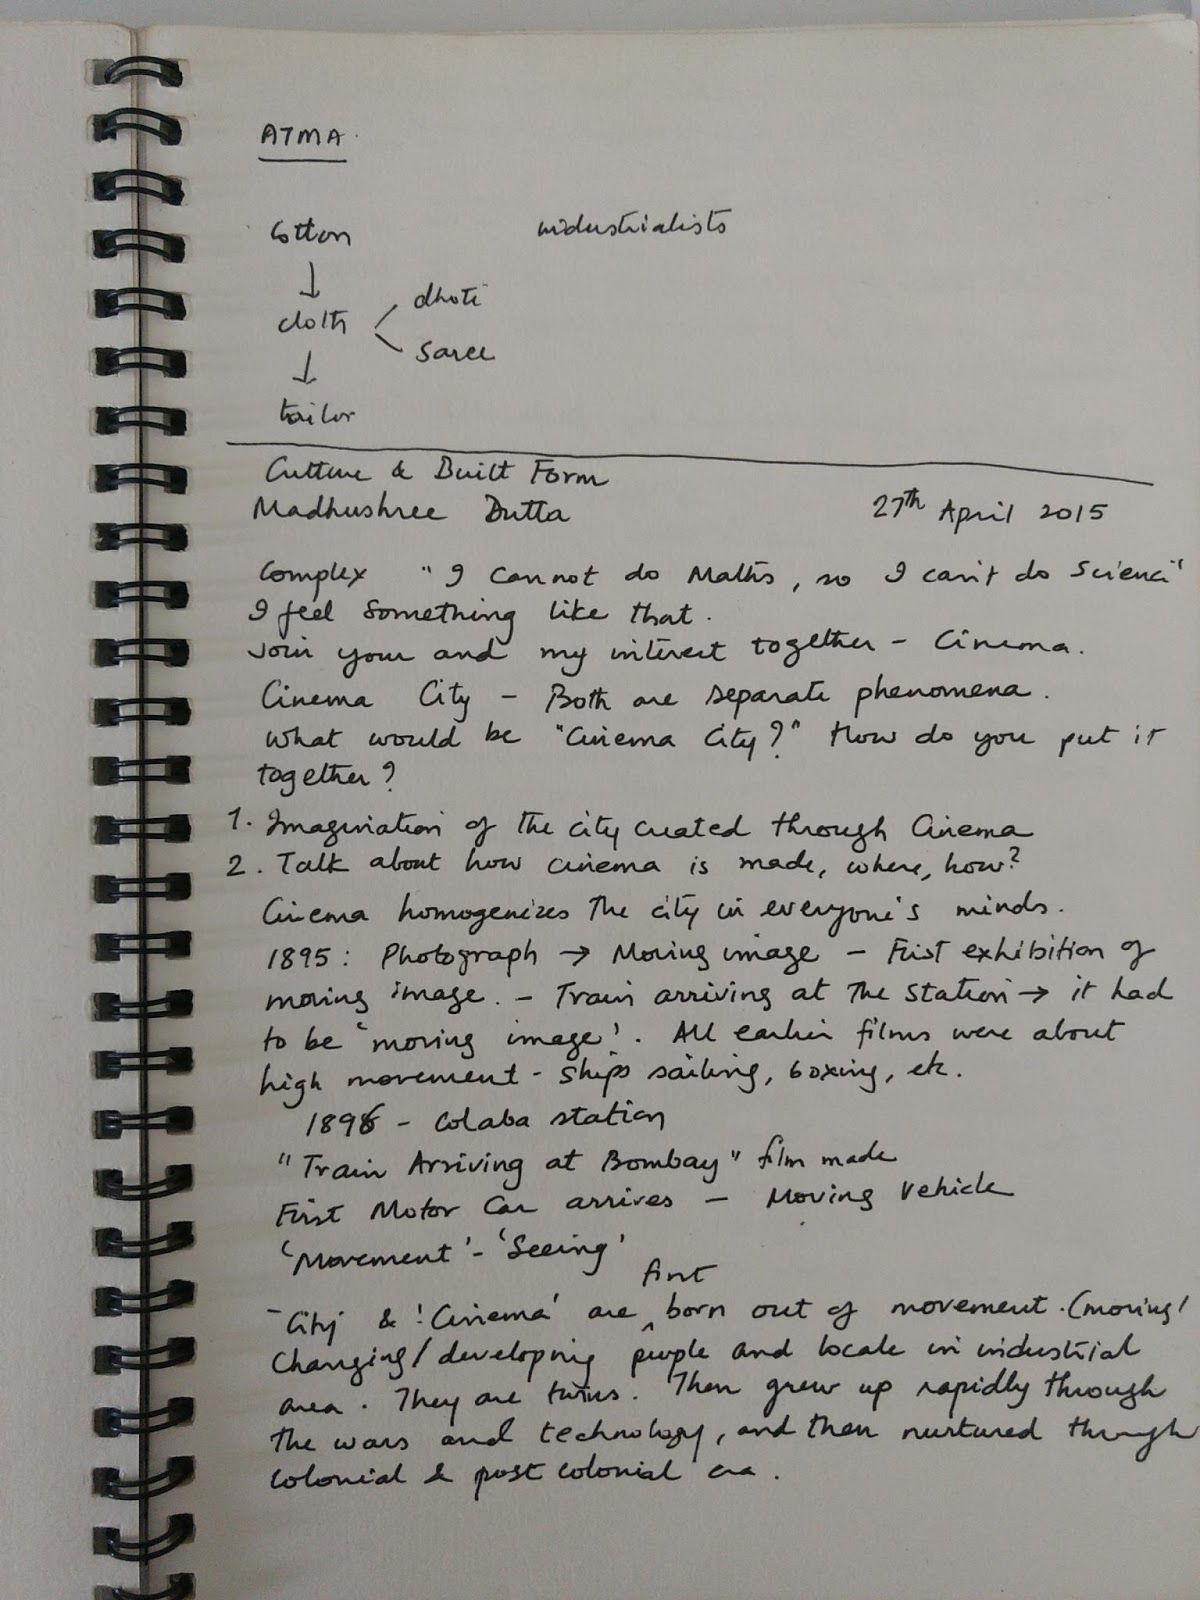 ATMA.
Cotton industrialists
↓
cloth dhoti
saree
↓
tailor
Culture & Built Form
Madhushree Dutta 27th April 2015
Complex "I cannot do Maths, so I can't do Science'
I feel something like that.
Join your and my interest together - Cinema.
Cinema City - Both are separate phenomena.
What would be "Cinema City?" How do you put it
together?
1. Imagination of the city created through Cinema
2. Talk about how cinema is made, where, how?
Cinema homogenizes the city in everyone's minds.
1895: Photograph → Moving image - First exhibition of
moving image. - Train arriving at the station → it had
to be 'moving image'. All earlier films were about
high movement - ships sailing, boxing, etc.
1896 - Colaba station
"Train Arriving at Bombay" film made
First Motor Car arrives - Moving vehicle
'Movement' - 'Seeing'
first
- City & 'Cinema' are ^ born out of movement. (moving/
changing/developing people and locale in industrial
area. They are twins. Then grew up rapidly through
the wars and technology, and then nurtured through
colonial & post colonial era.